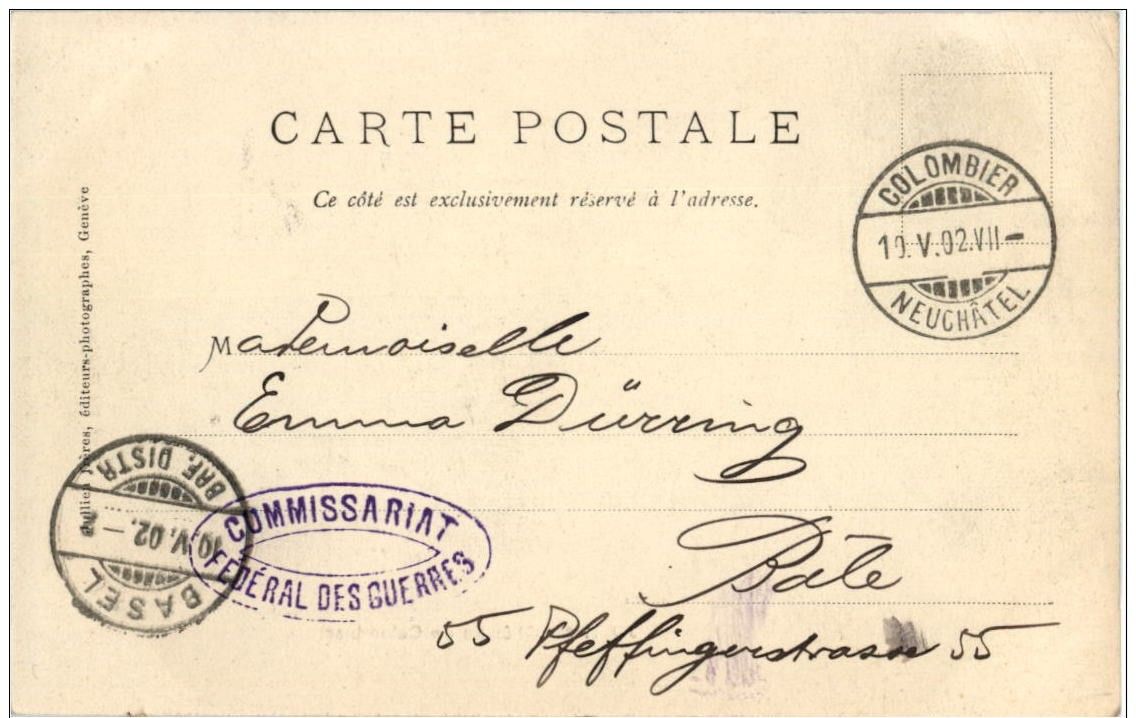 CARTE POSTALE
Ce côté est exclusivement réservé à l'adresse.
COLOMBIER
10.V.02.VII-
NEUCHÂTEL
Jullien Frères, éditeurs-photographes, Genève
Mademoiselle
Emma Dürring
Bâle
55 Pfeffingerstrasse 55
BASEL
10.V.02.-
BRF. DISTR
COMMISSARIAT
FÉDÉRAL DES GUERRES